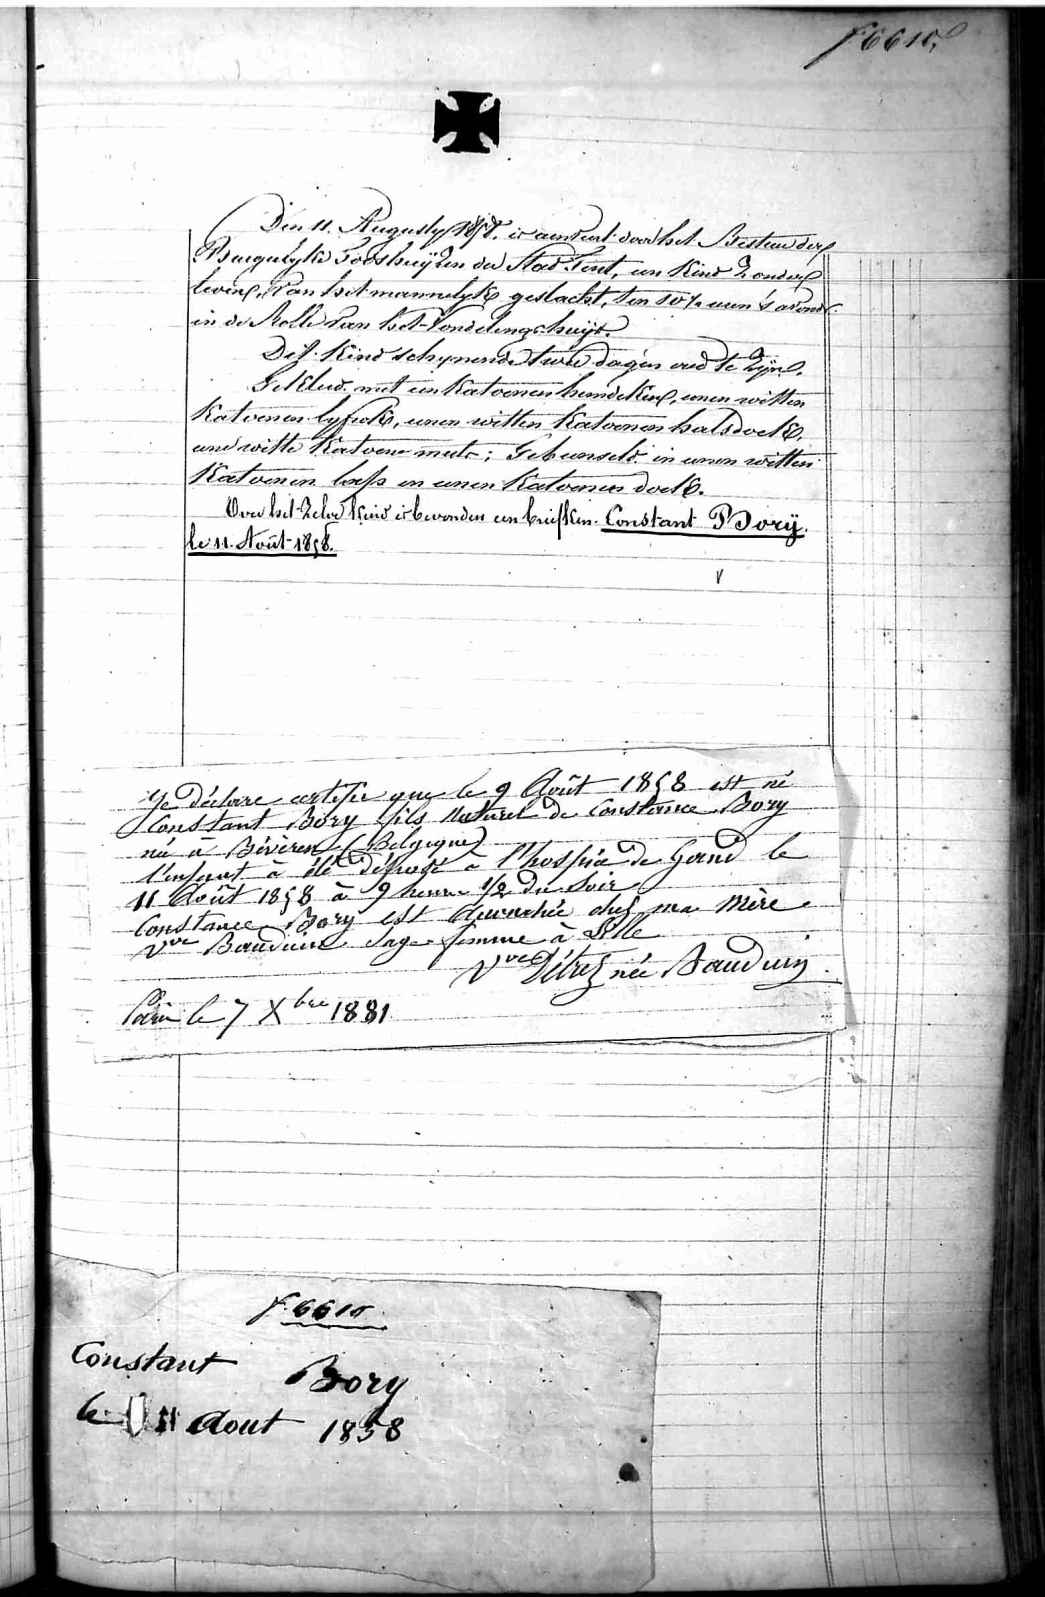 f 6610.
Den 11. Augusty 1858. is aenveerd door het Bestuer der
Burgerlyke Godshuyzen der Stad Gent, een kind zonder
leven, van het mannelyk geslacht, ten 10 ½ uren 's avonds
in de Rolle van het Vondelingshuys.
Dit kind schynende twee dagen oud te zyn.
Gekleed met een Katoenen hemdeken, eenen witten
Katoenen lyfrok, eenen witten Katoenen halsdoek,
eene witte Katoene muts; Gebunseld in eenen witten
Katoenen in eenen Katoenen doek.
Over het zelve kind is bevonden een briefken. Constant Bory.
le 11. Août 1858.
Je déclare certifie que le 9 Août 1858 est né
Constant Bory fils naturel de Constance Bory
née à Bévèren (Belgique)
l'enfant à été déposé à l'hospice de Gand le
11 Août 1858 à 9 heure 1/2 du soir
Constance Bory est accouchée chez ma mère
Vve Bauduin Sage-femme à Lille
Vve Détrez née Bauduin
Paris le 7 Xbre 1881
f. 6610
Constant Bory
le 11 Aout 1858